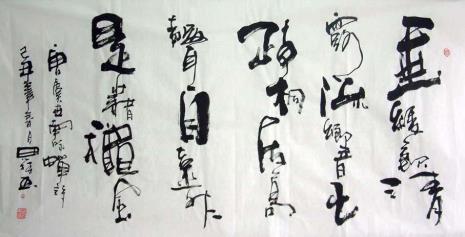 垂緌飲清
露流響出
疏桐居高
聲自遠非
是藉秋風
唐虞世南咏蟬詩
己丑年春月